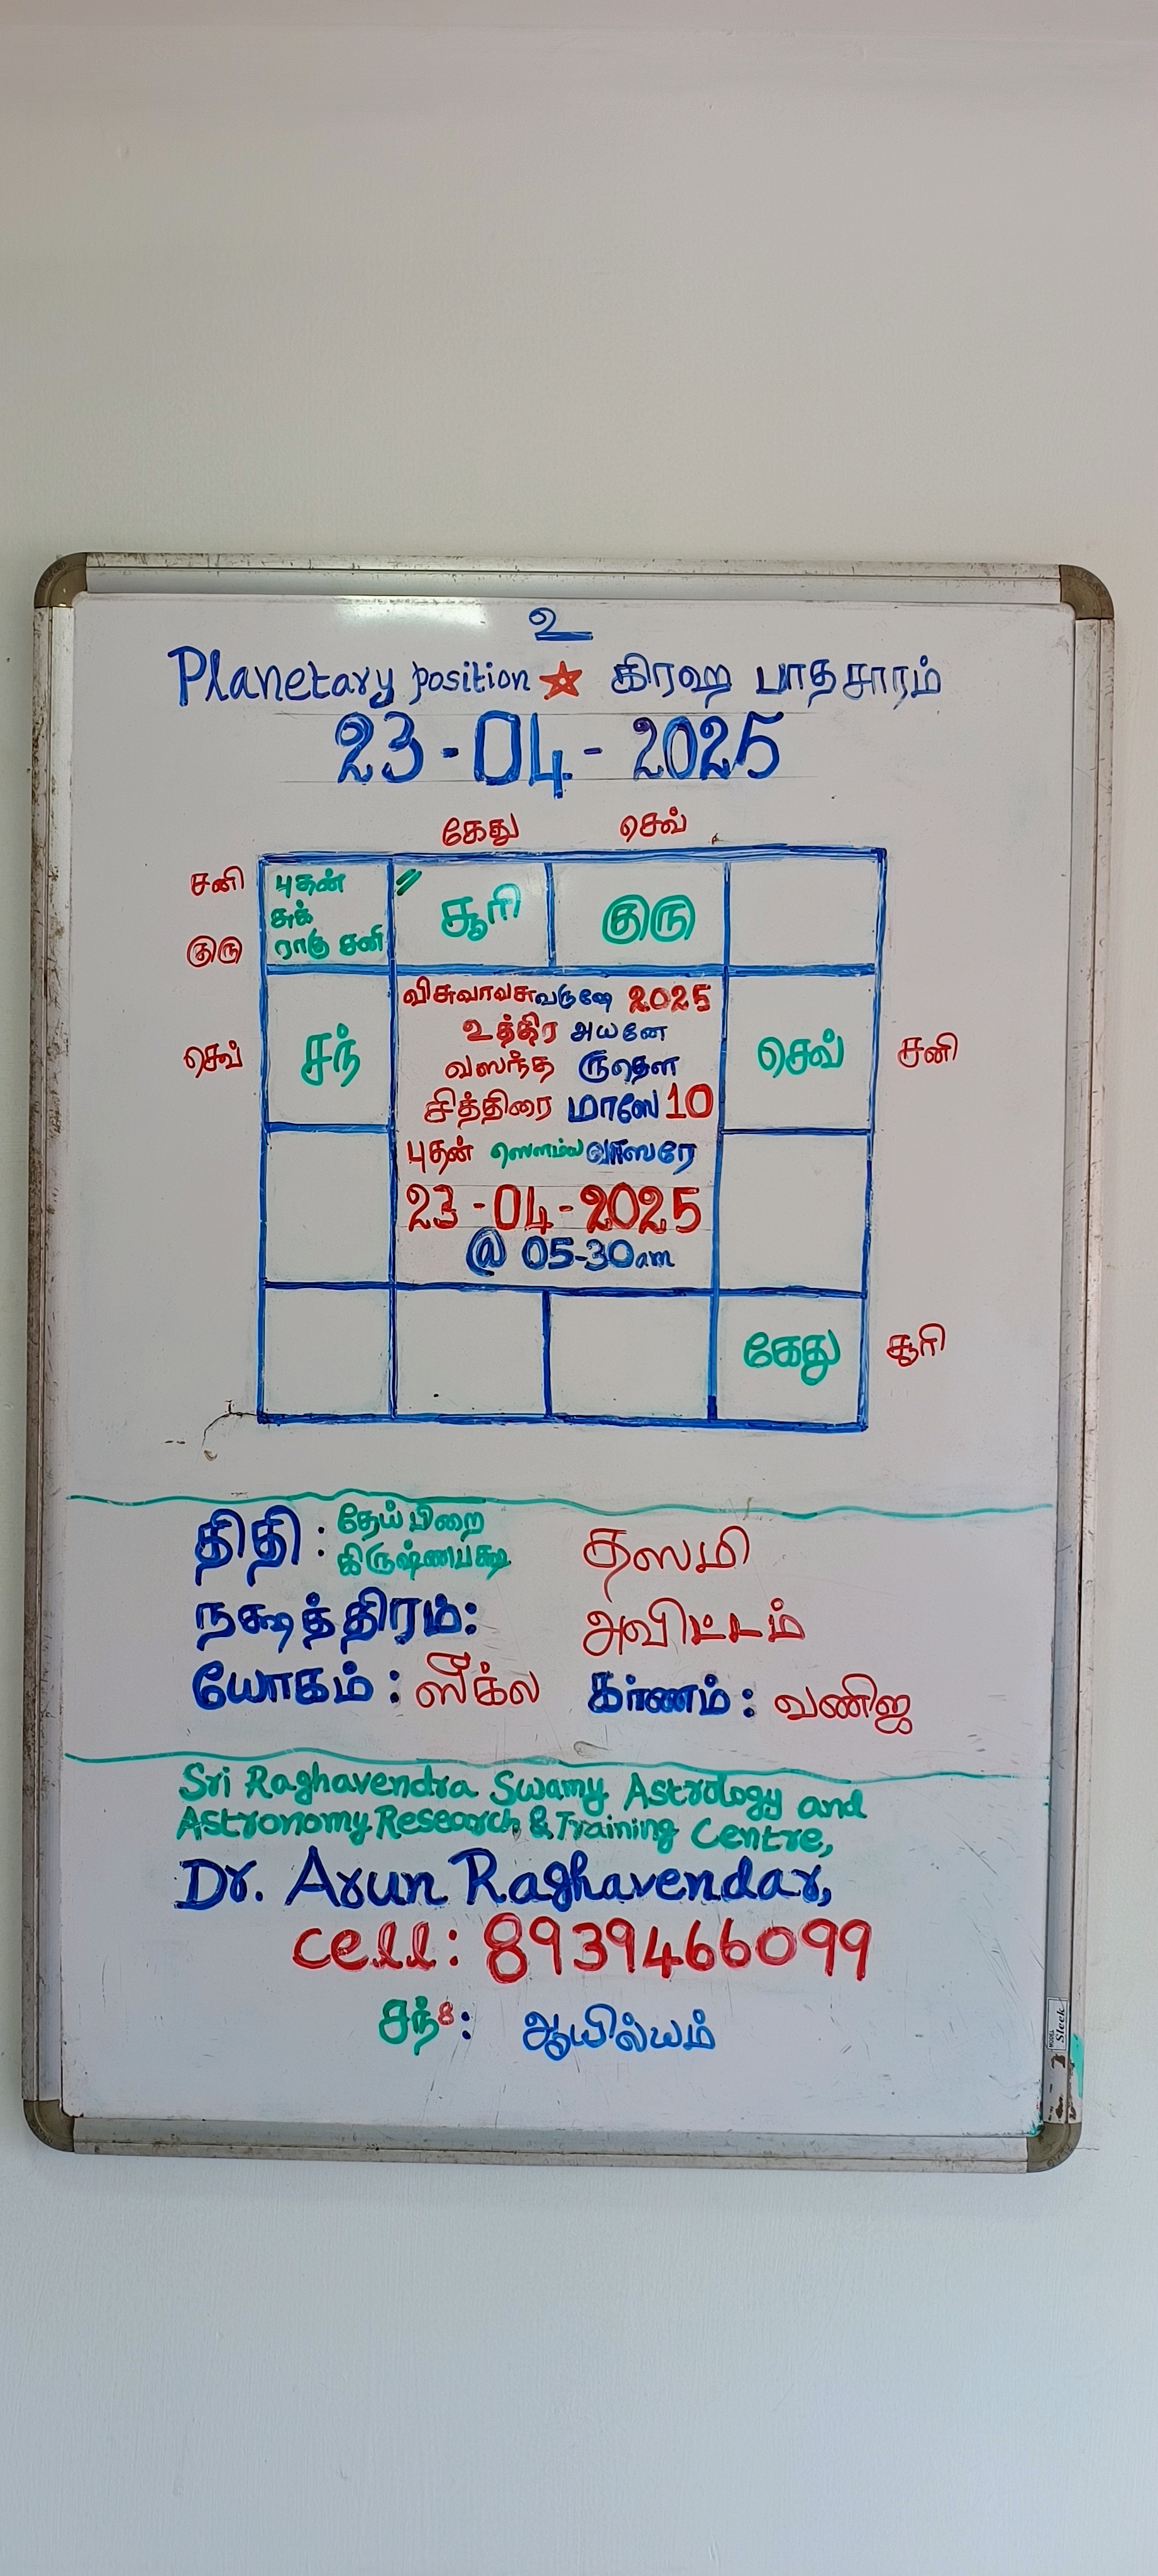 உ
Planetary position ★ கிரஹ பாதசாரம்
23-04-2025
கேது செவ்
சனி
குரு
புதன்
சுக்
ராகு சனி
சூரி
குரு
செவ்
சந்
விசுவாவசுவருஷே 2025
உத்திர அயனே
வஸந்த ருதௌ
சித்திரை மாஸே 10
புதன் ஸௌம்ய வாஸரே
23-04-2025
@ 05-30am
செவ்
சனி
கேது
சூரி
திதி : தேய்பிறை
கிருஷ்ணபக்ஷ தஸமி
நக்ஷத்திரம்: அவிட்டம்
யோகம் : ஸீக்ல கர்ணம் : வணிஜ
Sri Raghavendra Swamy Astrology and
Astronomy Research & Training Centre,
Dr. Arun Raghavendar,
cell: 8939466099
சந்8: ஆயில்யம்
Sleek